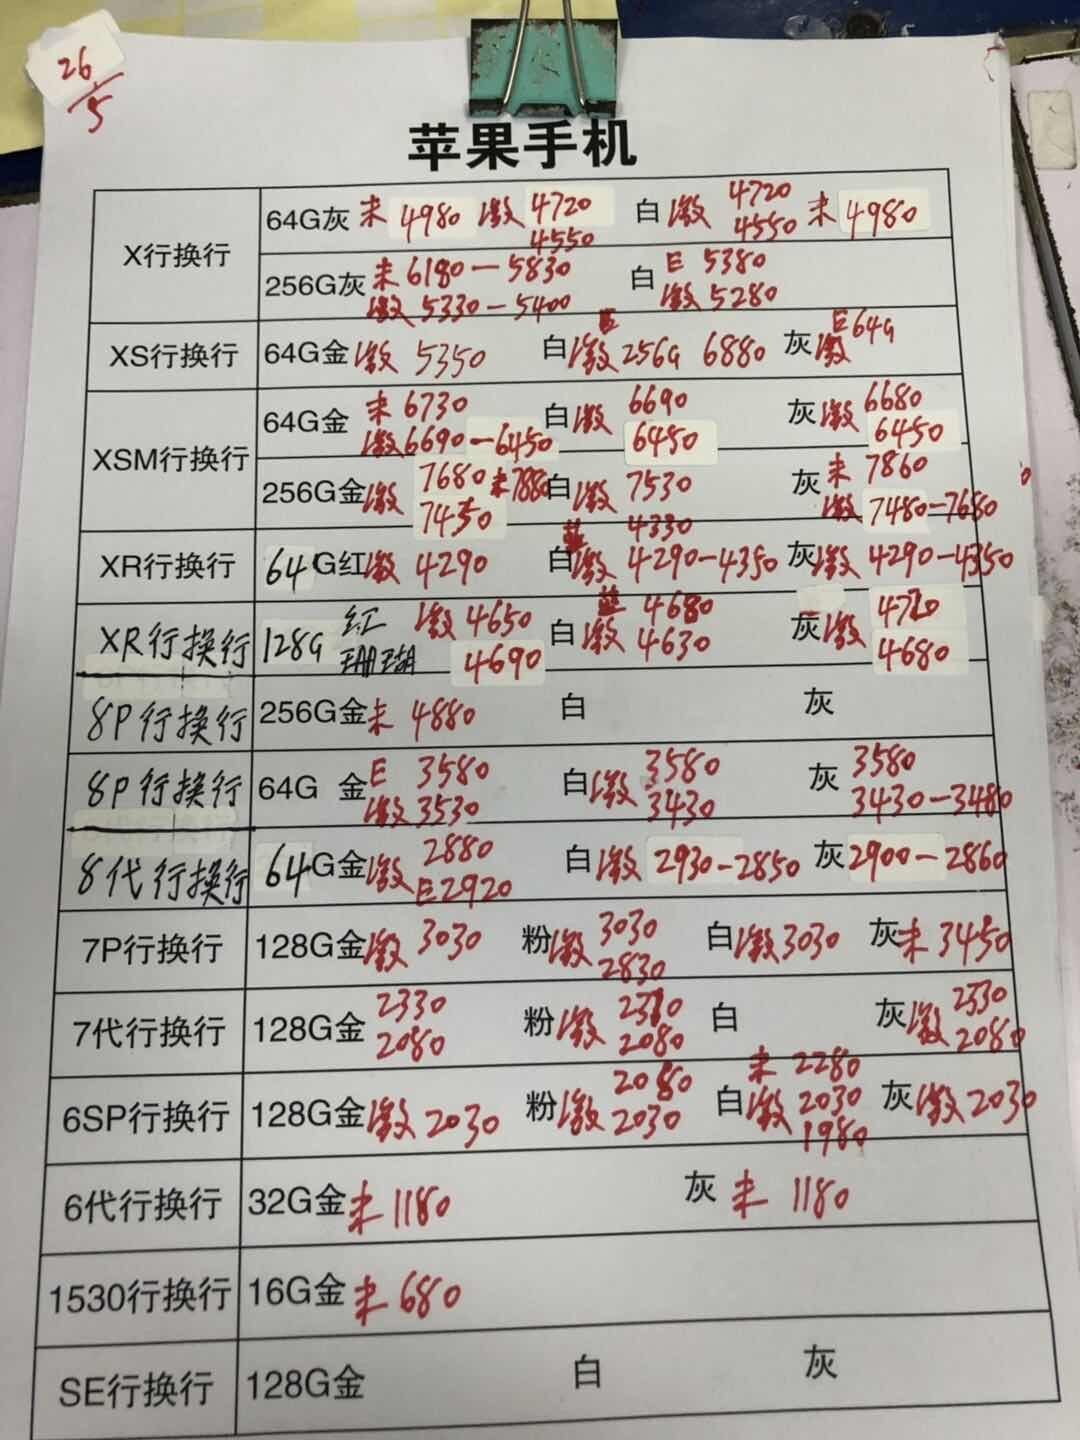 26/5
苹果手机
X行换行 64G灰 未 4980 激 4720 白 激 4720 未 4980
4550 4550
256G灰 未 6180-5830 白 E 5380
激 5330-5400 激 5280
XS行换行 64G金 激 5350 白 激 256G 6880 灰 E 64G
激
XSM行换行 64G金 未 6730 白 激 6690 灰 激 6680
激 6690-6450 6450 6450
256G金 激 7680 未 7880 白 激 7530 灰 未 7860
7450 激 7480-7680
XR行换行 64G红 激 4290 白 蓝 4330 灰 激 4290-4350
激 4290-4350
XR行换行 128G 红 激 4650 白 蓝 4680 灰 激
珊瑚 4690 激 4630 4680
8P行换行 256G金 未 4880 白 灰
8P行换行 64G 金 E 3580 白 激 3580 灰 3580
激 3530 3430 3430-3480
8代行换行 64G金 激 2880 白 激 2930-2850 灰 2900-2860
E2920
7P行换行 128G金 激 3030 粉 激 3030 白 激 3030 灰 未 3450
2830
7代行换行 128G金 2330 粉 激 白 灰 激 2330
2080 2080 2080
6SP行换行 128G金 激 2030 粉 激 2080 白 未 2280 灰 激 2030
2030 激 2030
1980
6代行换行 32G金 未 1180 灰 未 1180
1530行换行 16G金 未 680
SE行换行 128G金 白 灰